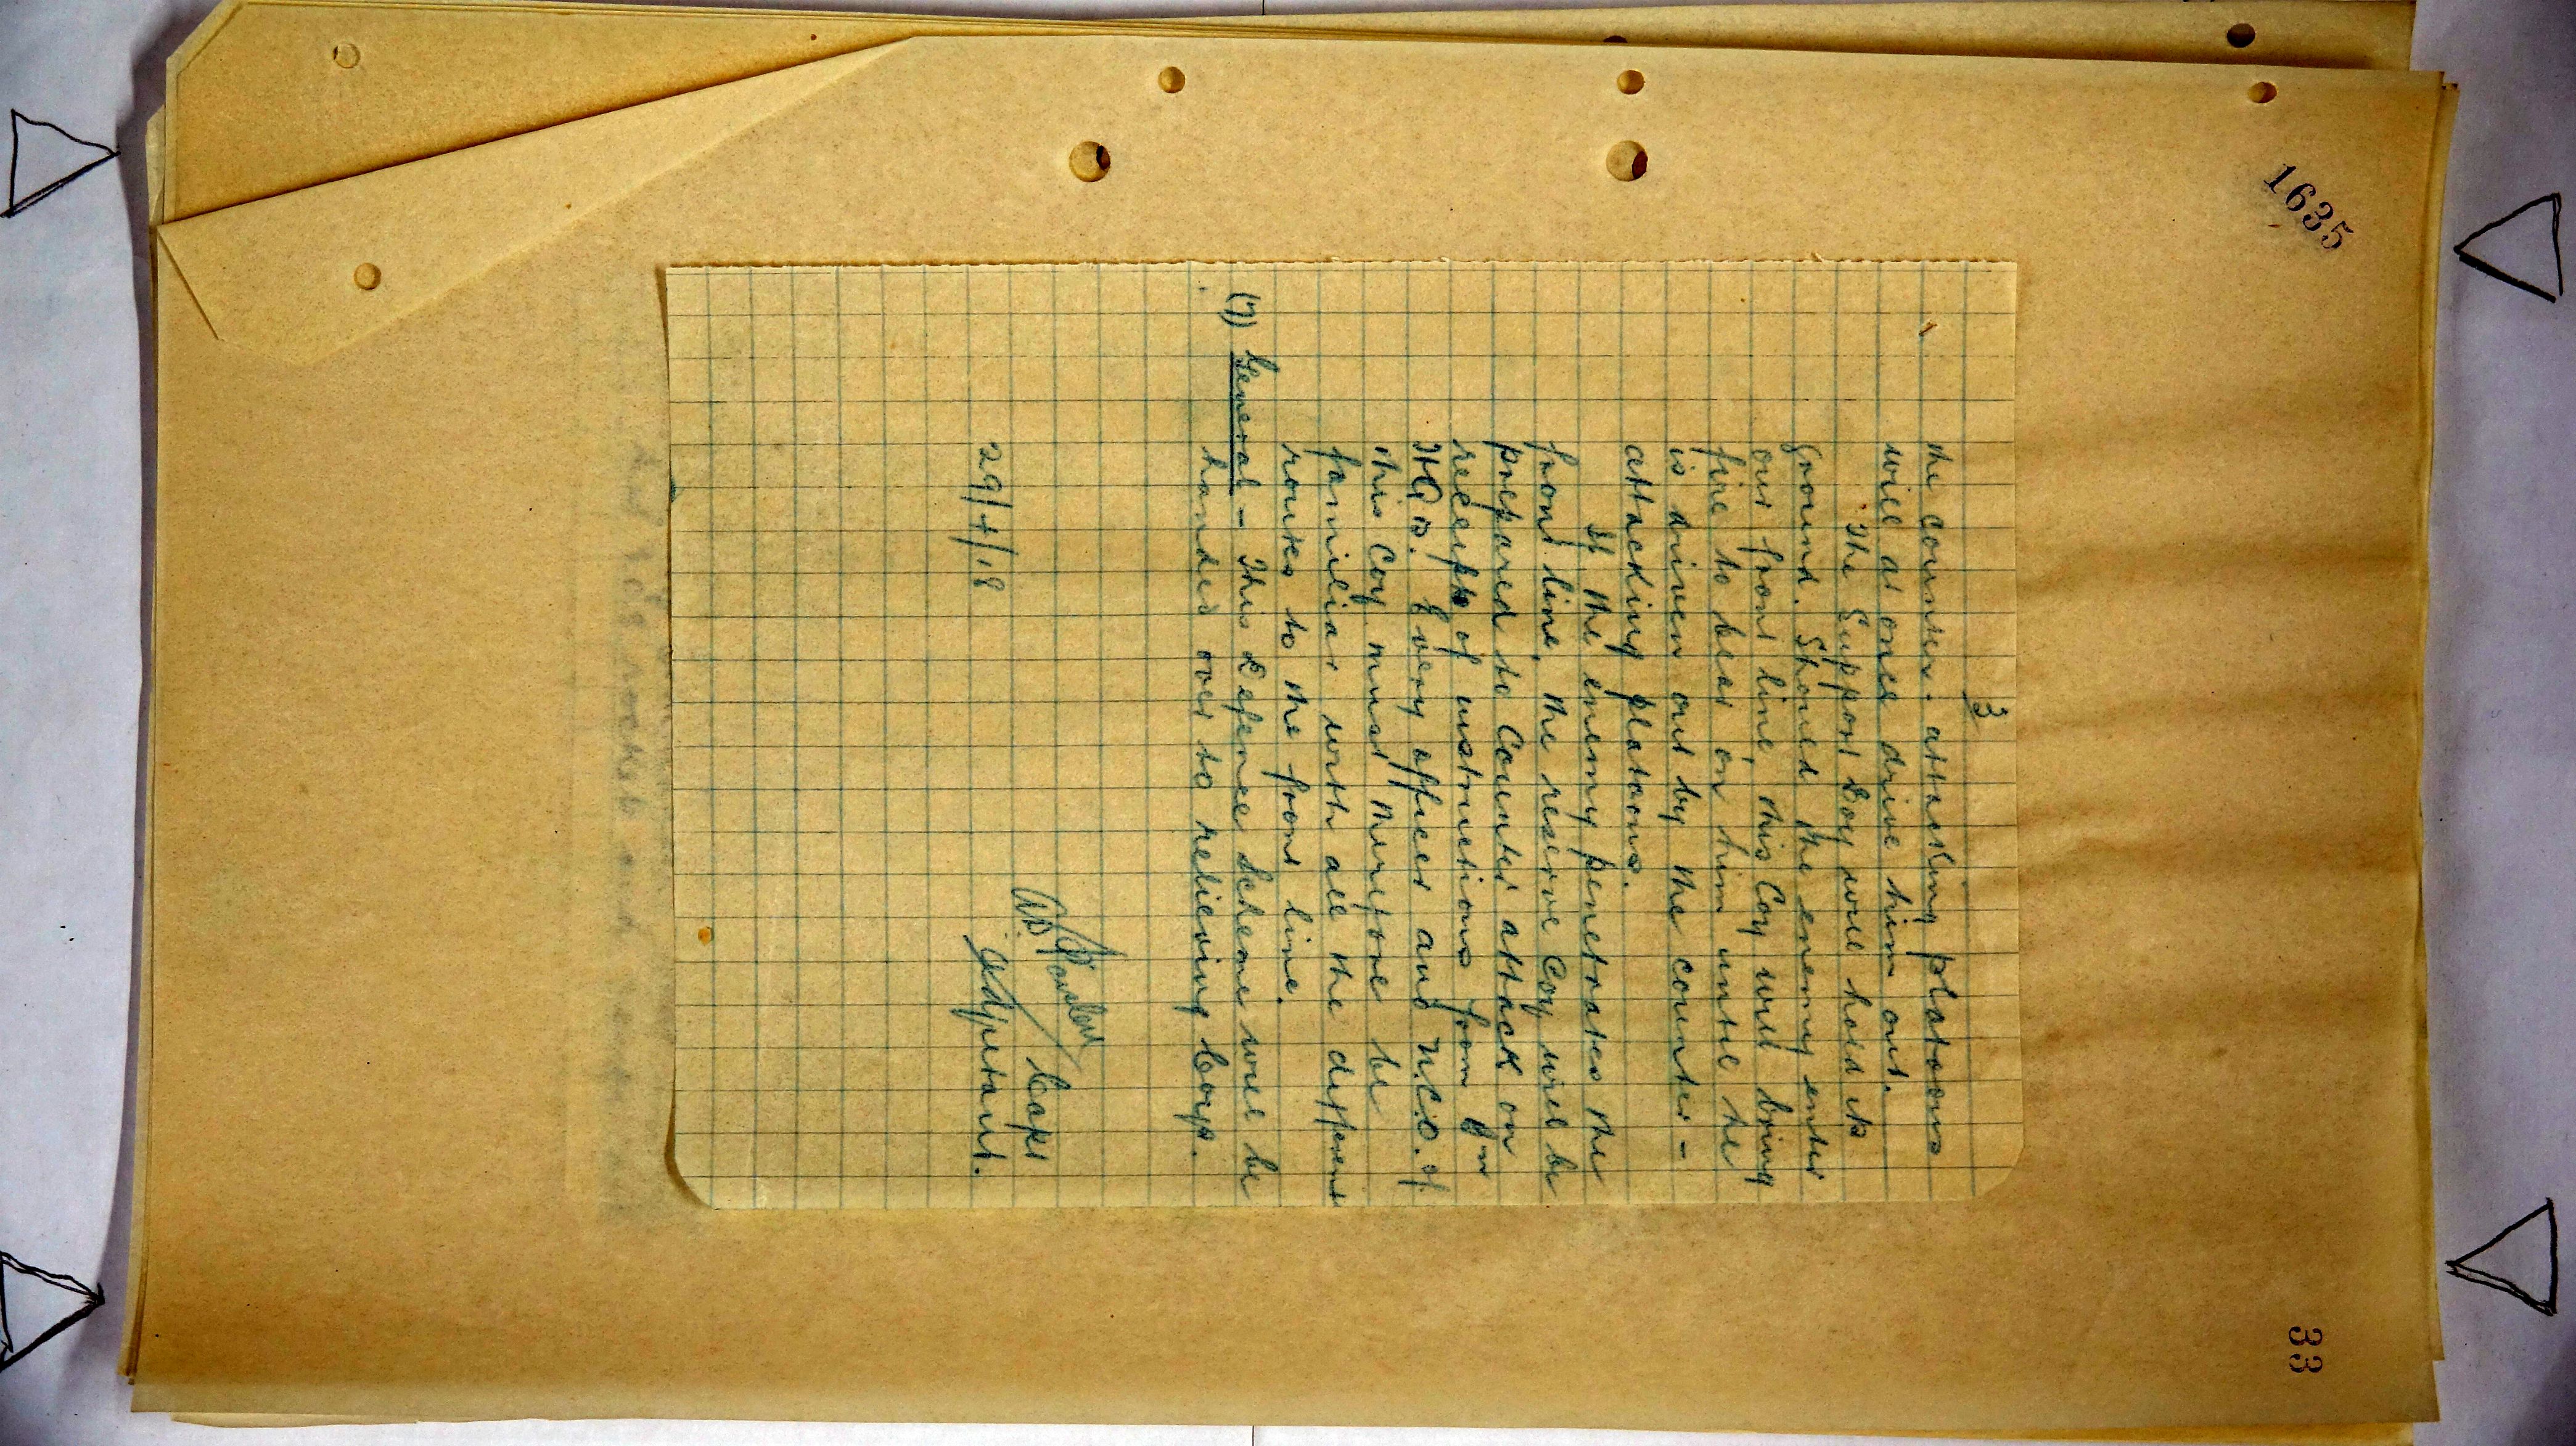 1635
33
3
the counter-attacking platoons
will at once drive him out.
The Support Coy will hold its
ground. Should the enemy enter
our front line, this Coy will bring
fire to bear on him until he
is driven out by the counter-
attacking platoons.
If the enemy penetrates the
front line, the reserve Coy will be
prepared to Counter attack on
receipt of instructions from Bn
HQrs. Every officer and N.C.O. of
this Coy must therefore be
familiar with all the different
routes to the front line.
(7) General - This Defence Scheme will be
handed over to relieving Coys.
Capt
29/7/18 Adjutant.